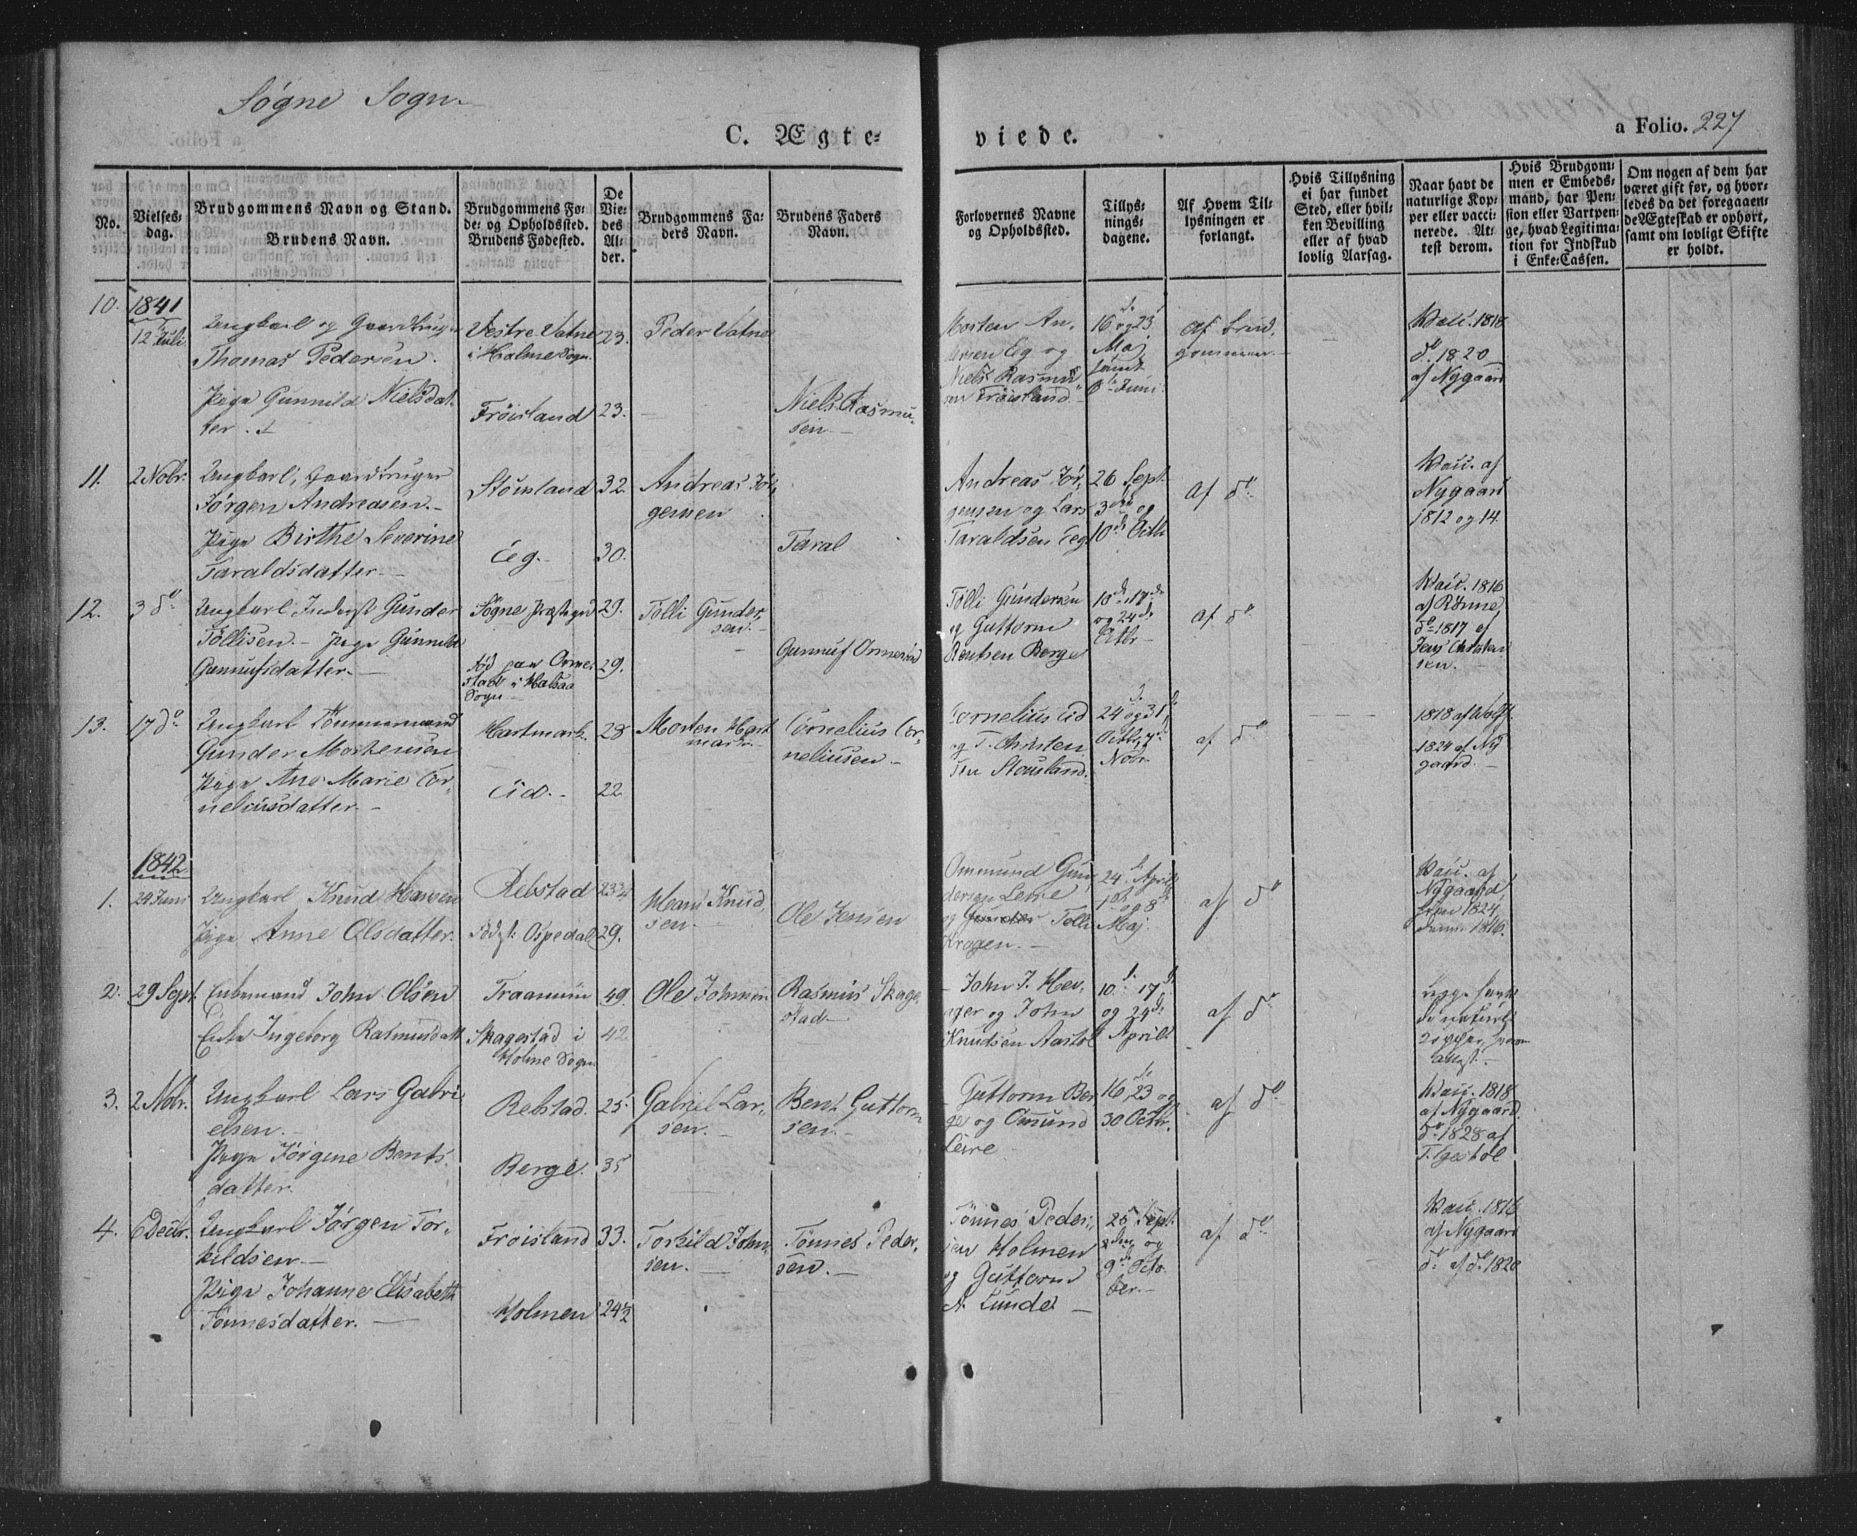 Søgne Sogn
C. Ægte-
viede.
a Folio. 227
No.
Vielses-
dag.
Brudgommens Navn og Stand.
Brudens Navn.
Brudgommens Fø-
de- og Opholdssted.
Brudens Fødested.
De
Vie-
des
Al-
der.
Brudgommens Fa-
ders Navn.
Brudens Faders
Navn.
Forlovernes Navne
og Opholdssted.
Tillys-
nings-
dagene.
Af Hvem Til-
lysningen er
forlangt.
Hvis Tillysning
ei har fundet
Sted, eller hvil-
ken Bevilling
eller af hvad
lovlig Aarsag.
Naar havt de
naturlige Kop-
per eller vacci-
nerede. At-
test derom.
Hvis Brudgom-
men er Embeds-
mand, har Pen-
sion eller Vartpen-
ge, hvad Legitima-
tion for Indskud
i Enke-Cassen.
Om nogen af dem har
været gift før, og hvor-
ledes da det foregaaen-
de Ægteskab er ophørt,
samt om lovligt Skifte
er holdt.
10.
1841
12 Juli
Ungkarl og Gaardbruger
Thomas Pedersen.
Pige Gunnild Nielsdat-
ter.
Vestre Vatne
i Halme Sogn.
Frøisland
23.
23.
Peder Vatne
Niels Rasmu-
sen
Morten An-
dersen Eg og
Niels Rasmu-
sen Frøisland
16 og 23
Maj
samt
6te Juni
Af Brud-
gommen
Vac. 1818
do. 1820
af Nygaard
11.
2 Nobr.
Ungkarl, Gaardbruger
Jørgen Andreasen.
Pige Birthe Severine
Taraldsdatter.
Stousland
Eeg.
32.
30.
Andreas Jør-
gensen
Taral
Andreas Jør-
gensen og Lars
Taraldsen Eeg
26 Sept.
3die og
10de Octb
af do
Vac. af
Nygaard
1812 og 14.
12.
3 do
Ungkarl, Inderst Gunder
Tollisen. Pige Gunnild
Gunnufsdatter.
Søgne Præstegd
fød paa Orme-
stad i Halsaa
Sogn
29.
29.
Tolli Gunder-
sen.
Gunnuf Ormestad
Tolli Gundersen
og Guttorm
Bentsen Berge
10de 17de
og 24de
Octbr
af do
Vac. 1816
af Rønne
do 1817 af
Jens Christen
sen.
13.
17 do
Ungkarl Tømmermand
Gunder Mortensen
Pige Ane Marie Cor-
neliusdatter.
Hartmark.
Eid.
28
22
Morten Hart
mark
Cornelius Cor-
neliusen
Cornelius Eid
og T. Christen
sen Stousland.
24 og 31
Octbr, 7
Novr
af do
1818 af Wolff
1824 af Ny
gaard.
1842
1.
29 Juni
Ungkarl Knud Hansen
Pige Anne Olsdatter.
Rebstad
Fødst Ospedal
23¾
29.
Hans Knud-
sen.
Ole Jensen
Ommund Gun-
dersen Leire
og Tolli
Krogen.
24de April
1ste og 8de
Maj.
af do
Vac. af
Nygaard,
han 1824
1816.
2.
29 Sept.
Enkemand John Olsen
Enke Ingeborg Rasmusdatt
Traanum
Skagestad i
Holme Sogn
49.
42
Ole Johnsen
Rasmus Skage-
stad
John J. Hev-
ager og John
Knudsen Aastøl
10de 17de
og 24de
April
af do
begge havt
de naturl.
Kopper
3.
2 Nobr.
Ungkarl Lars Gabri
elsen.
Pige Jørgine Bents-
datter.
Rebstad.
Berge.
25
35
Gabriel Lar-
sen.
Bent Guttorm
sen.
Guttorm Ber
ge og Omund
Leire
16, 23 og
30 Octbr.
af do
Vac. 1818
af Nygaard.
do 1828 af
T. Igestøl
4.
6 Decbr.
Ungkarl Jørgen Tor-
kildsen.
Pige Johanne Elisabeth
Tønnesdatter.
Frøisland
Holmen
33.
24½
Torkild John-
sen.
Tønnes Peder-
sen.
Tønnes Peder-
sen Holmen
og Guttorm
A. Lunde
25 Sept.
2den og
9de Octo
ber.
af do
Vac. 1816
af Nygaard
do af do 1820